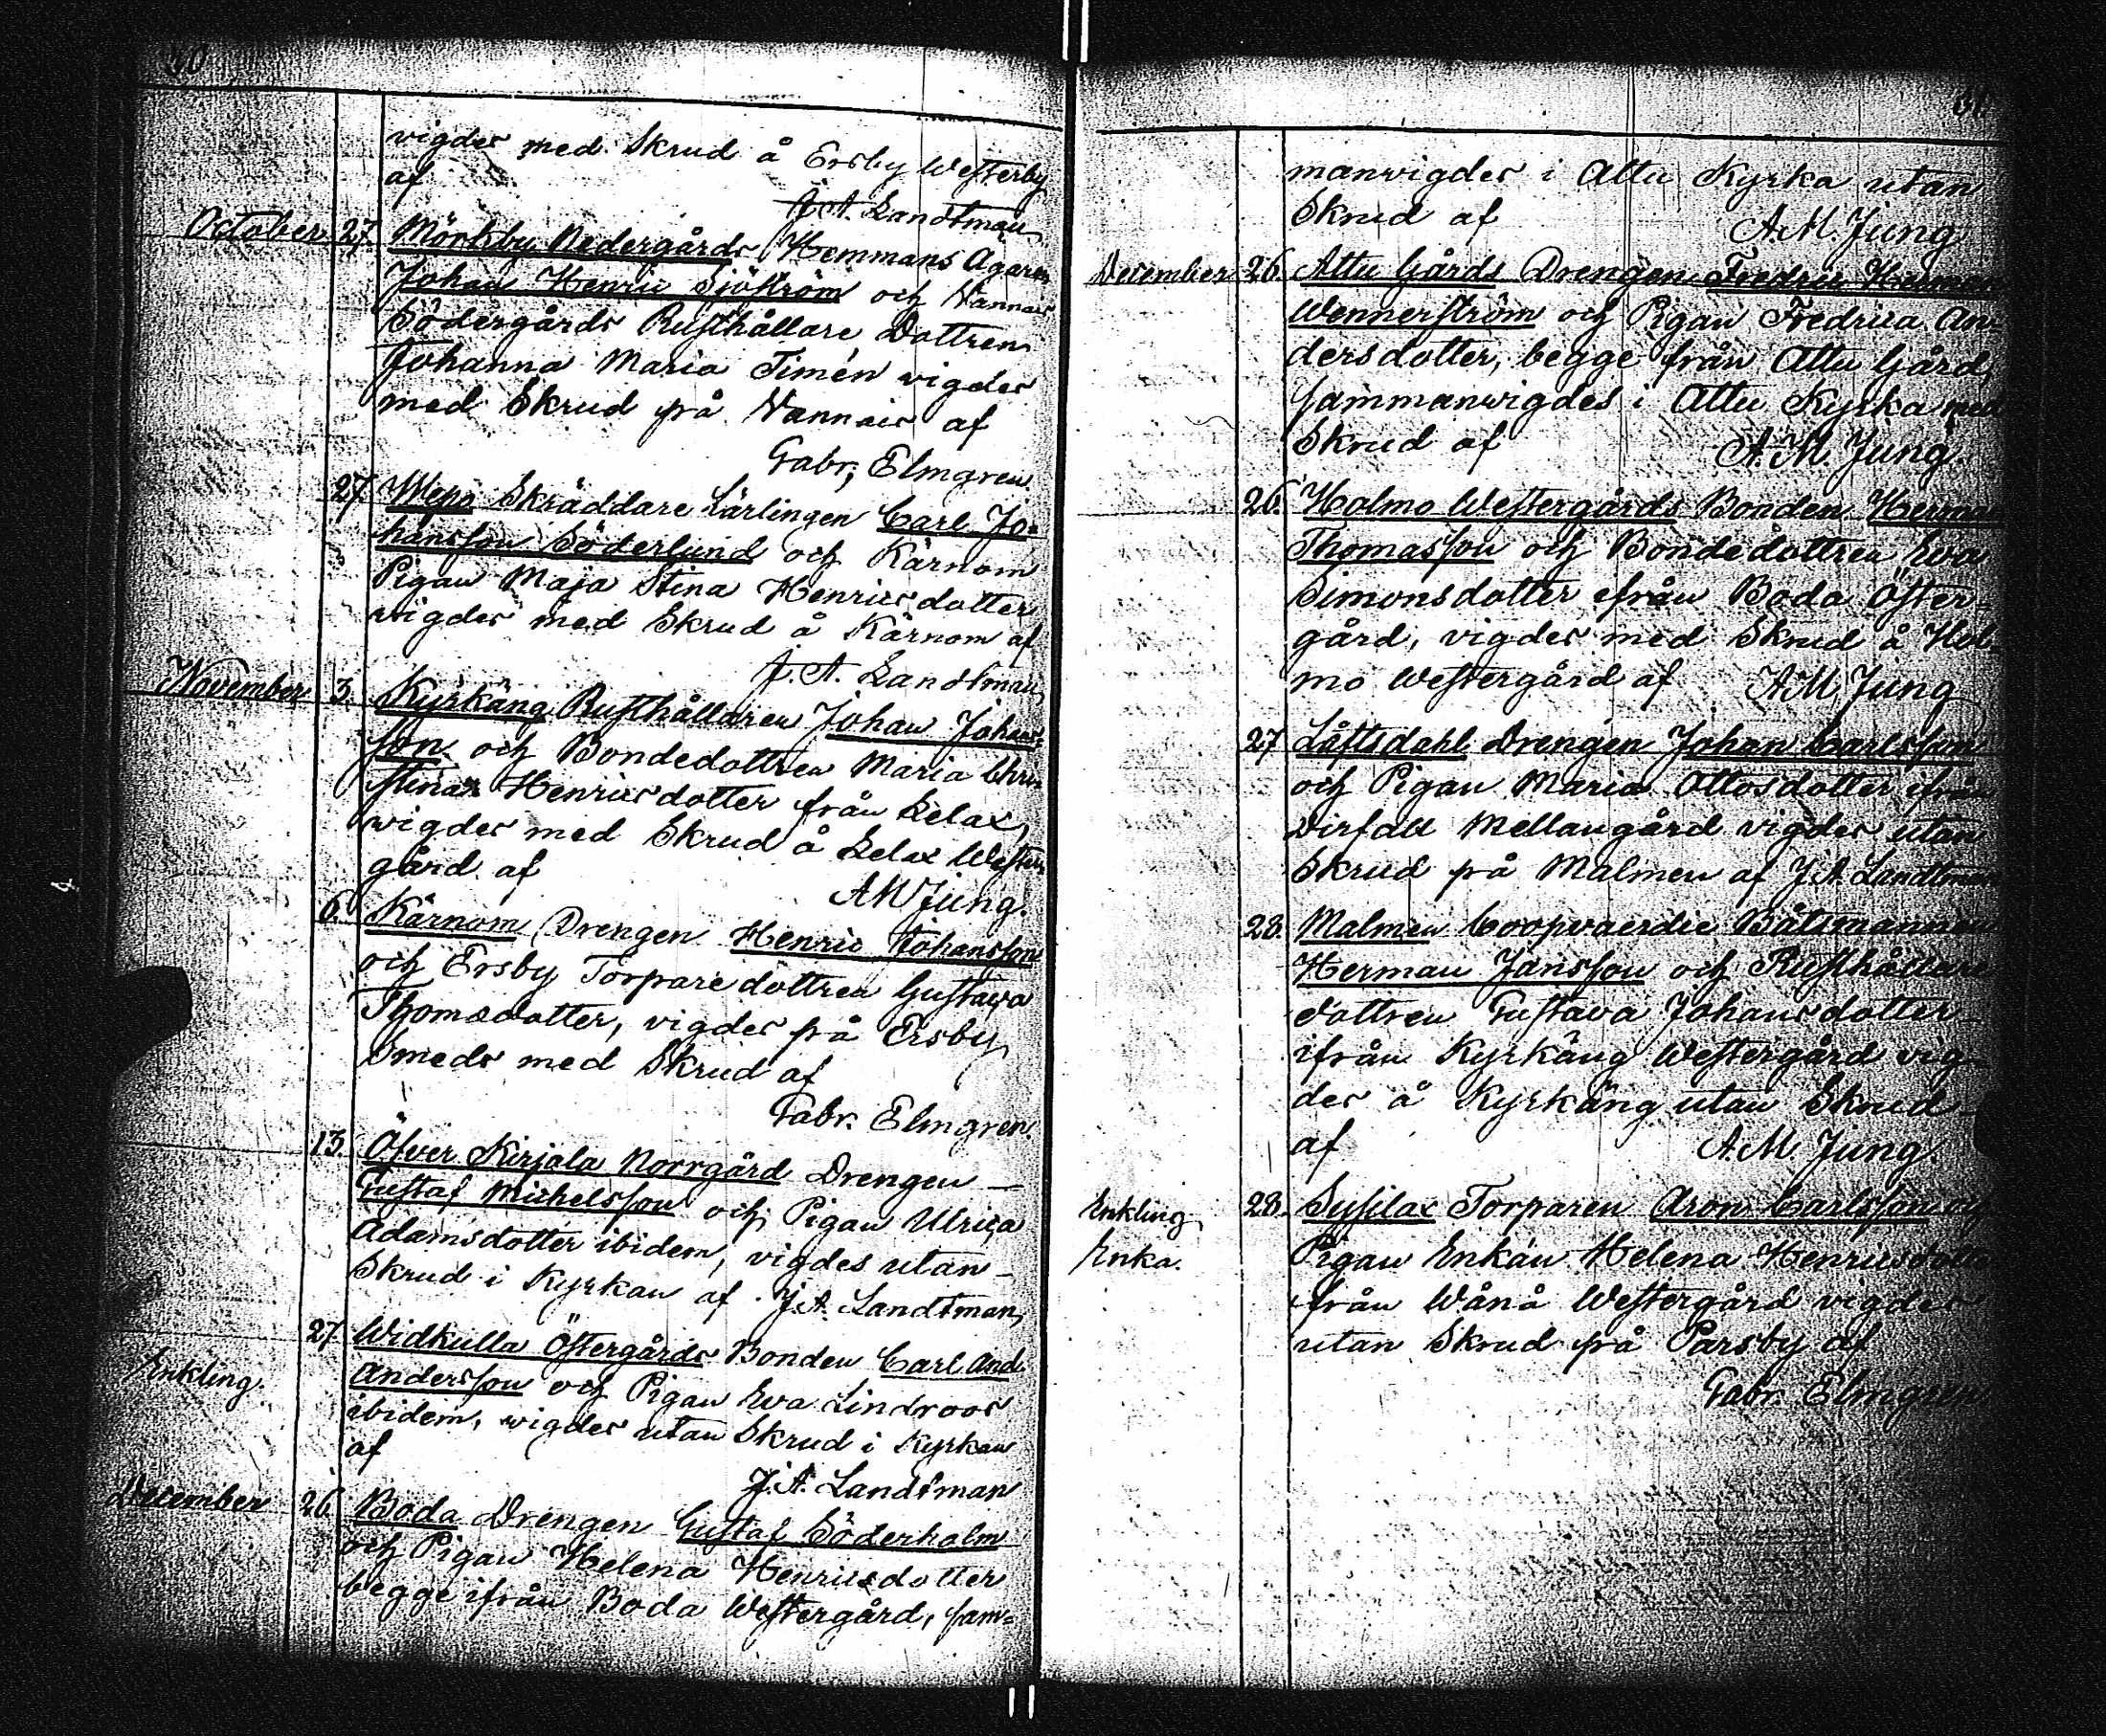 vigdes med Skrud å Ersby Westerby
af
J. A. Landtman
October 27. Mörkby Nedergårds Hemmans Ägaren
Johan Henric Sjöström och Vannais
Södergårds Rusthållare Dottren
Johanna Maria Timén vigdes
med Skrud på Vannais af
Gabr; Elmgren
27. Wepo Skräddare Lärlingen Carl Jo=
hansson Söderlund och Kärnom
Pigan Maja Stina Henricsdotter
vigdes med Skrud å Kärnom af
J. A. Landtman
November 3. Kyrkäng Rusthållaren Johan Johans=
son och Bondedottren Maria Chri=
stina Henricsdotter från Lelax,
vigdes med Skrud å Lelax Wester=
gård af
AM Jung.
6. Kärnom Drengen Henric Johansson
och Ersby Torparedottren Gustava
Thomædotter, vigdes på Ersby
Smeds med Skrud af
Gabr. Elmgren.
13. Öfver Kirjala Norrgård Drengen
Gustaf Michelsson och Pigan Ulrica
Adamsdotter ibidem, vigdes utan
Skrud i Kyrkan af J. A. Landtman
27. Widkulla Östergårds Bonden Carl And.
Enkling. Andersson och Pigan Eva Lindroos
ibidem, vigdes utan Skrud i Kyrkan
af
J. A. Landtman
December 26. Boda Drengen Gustaf Söderholm
och Pigan Helena Henricsdotter
begge ifrån Boda Westergård, sam=
manvigdes i Attu Kyrka utan
Skrud af
A. M. Jung
December 26. Attu Gårds Drengen Fredric Herman
Wennerström och Pigan Fredrica An=
dersdotter, begge från Attu Gård,
sammanvigdes i Attu Kyrka med
Skrud af
A. M. Jung
26. Holmo Westergårds Bonden Herman
Thomasson och Bondedottren Eva
Simonsdotter ifrån Boda Öster=
gård, vigdes med Skrud å Hol=
mo Westergård af A M Jung
27 Låftsdahl Drengen Johan Carlsson
och Pigan Maria Ottosdotter ifrån
Mellangård vigdes utan
Skrud på Malmen af J. A. Landtman
28. Malmen Coopvaerdie Båtsmannen
Herman Jansson och Rusthållare
dottren Gustava Johansdotter
ifrån Kyrkäng Westergård vig=
des å Kyrkäng utan Skrud
af
A. M. Jung.
Enkling 28. Sysilax Torparen Aron Carlsson och
Enka. Pigan Enkan Helena Henricsdotter
från Wånå Westergård vigdes
utan Skrud på Parsby af
Gabr. Elmgren